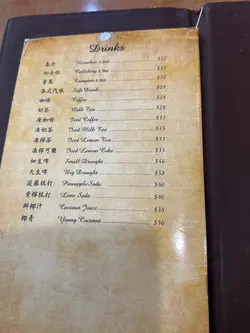 Drinks
喜力 Heineken $32
加士伯 Carlsberg $32
青島 Tsingtao $32
各式汽水 Soft Drink $28
咖啡 Coffee $28
奶茶 Milk Tea $28
凍咖啡 Iced Coffee $31
凍奶茶 Iced Milk Tea $31
凍檸茶 Iced Lemon Tea $31
凍檸可樂 Iced Lemon Coke $31
細生啤 Small Draught $46
大生啤 Big Draught $58
菠蘿梳打 Pineapple Soda $40
青檸梳打 Lime Soda $40
鮮椰汁 Coconut Juice $38
椰青 Young Coconut $56